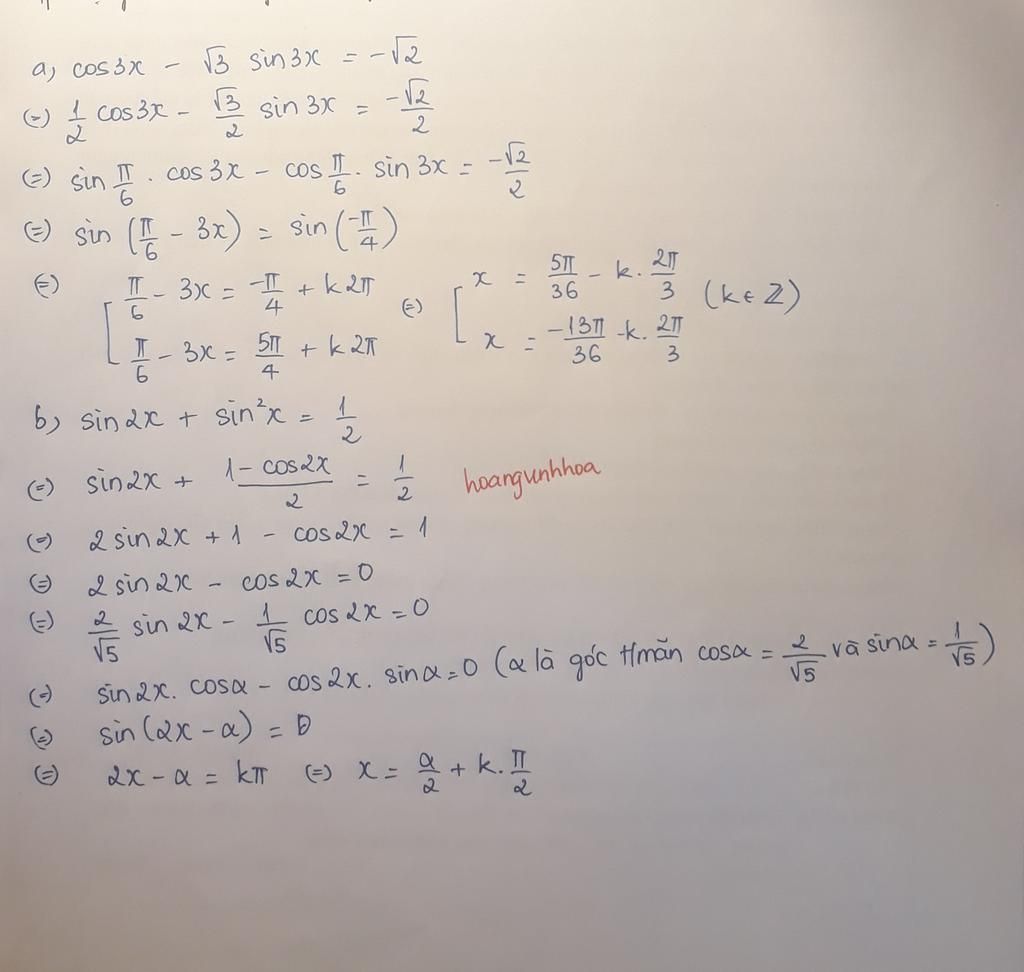 a, cos3x - √3 sin3x = -√2
(=) 1/2 cos3x - √3/2 sin3x = -√2/2
(=) sin π/6 . cos3x - cos π/6 . sin3x = -√2/2
(=) sin (π/6 - 3x) = sin(-π/4)
(=) [ π/6 - 3x = -π/4 + k2π (=) [ x = 5π/36 - k. 2π/3 (k ∈ Z)
π/6 - 3x = 5π/4 + k2π x = -13π/36 - k. 2π/3
b, sin2x + sin²x = 1/2
(=) sin2x + (1 - cos2x)/2 = 1/2 hoangunhhoa
(=) 2sin2x + 1 - cos2x = 1
(=) 2sin2x - cos2x = 0
(=) 2/√5 sin2x - 1/√5 cos2x = 0
(=) sin2x. cosα - cos2x. sinα = 0 (α là góc t/mãn cosα = 2/√5 và sinα = 1/√5)
(=) sin(2x - α) = 0
(=) 2x - α = kπ (=) x = α/2 + k. π/2